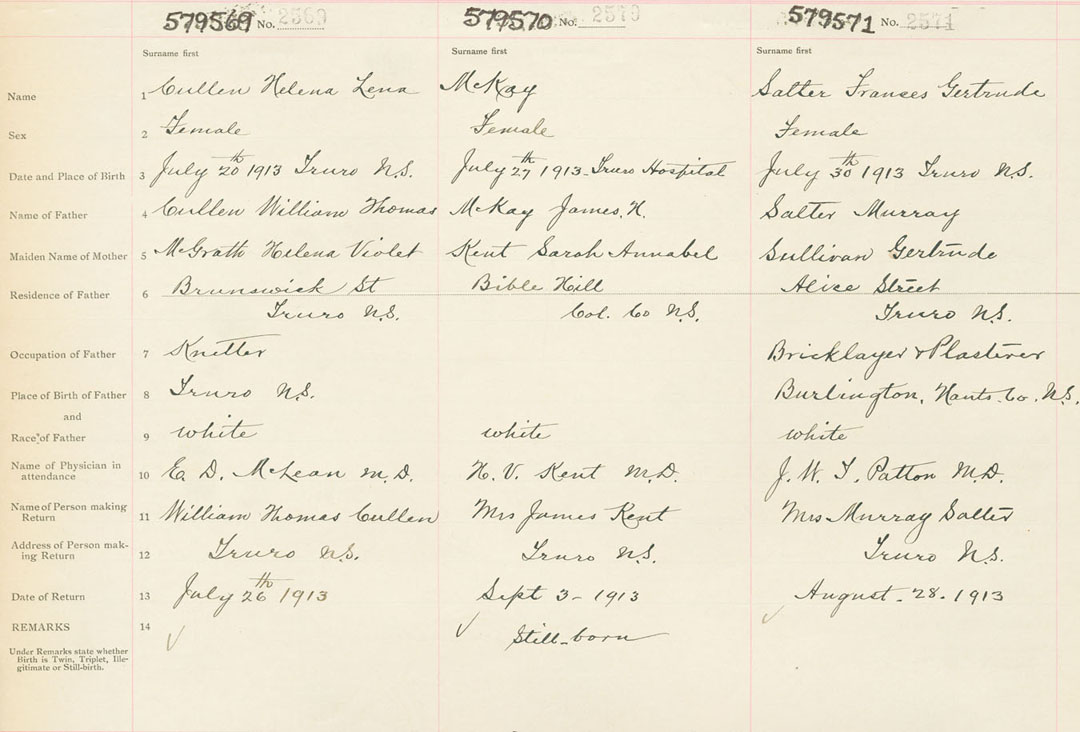 579569 No. 2569 579570 No. 2570 579571 No. 2571
Surname first Surname first Surname first
Name 1 Cullen Helena Lena McKay Salter Frances Gertrude
Sex 2 Female Female Female
Date and Place of Birth 3 July 20th 1913 Truro N.S. July 27th 1913 - Truro Hospital July 30th 1913 Truro N.S.
Name of Father 4 Cullen William Thomas McKay James, H. Salter Murray
Maiden Name of Mother 5 McGrath Helena Violet Kent Sarah Annabel Sullivan Gertrude
Residence of Father 6 Brunswick St Bible Hill Alice Street
Truro N.S. Col. Co N.S. Truro N.S.
Occupation of Father 7 Knitter Bricklayer & Plasterer
Place of Birth of Father 8 Truro N.S. Burlington, Hants. Co. N.S.
and
Race of Father 9 white white white
Name of Physician in
attendance 10 E. D. McLean M.D. H. V. Kent M.D. J. W. T. Patton M.D.
Name of Person making
Return 11 William Thomas Cullen Mrs James Kent Mrs Murray Salter
Address of Person mak-
ing Return 12 Truro N.S. Truro N.S. Truro N.S.
Date of Return 13 July 26th 1913 Sept 3 - 1913 August - 28 - 1913
REMARKS 14 Still-born
Under Remarks state whether
Birth is Twin, Triplet, Ille-
gitimate or Still-birth.